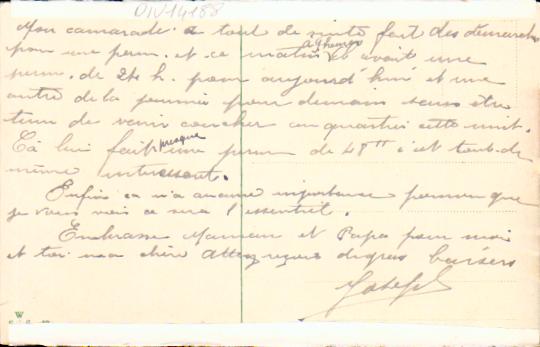 DIV14188
Mon camarade a tout de suite fait des démarches
pour une perm. et ce matin à 9 heures il avait une
perm. de 24 h. pour aujourd'hui et une
autre de la journée pour demain sans être
tenu de venir coucher au quartier cette nuit.
Cà lui fait presque une perm de 48 H c'est tout de
même intéressant.
Enfin ça n'a aucune importance pourvu que
je vous vois ce sera l'essentiel.
Embrasse Maman et Papa pour moi
et toi ma chère reçois de gros baisers
Joseph
W